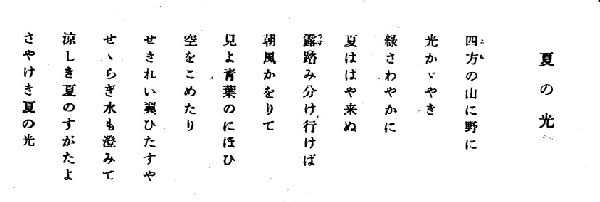 夏の光
四方の山に野に
光かゞやき
緑さわやかに
夏ははや来ぬ
露踏み分け行けば
朝風かをりて
見よ青葉のにほひ
空をこめたり
せきれい翼ひたすや
せゝらぎ水も澄みて
涼しき夏のすがたよ
さやけき夏の光